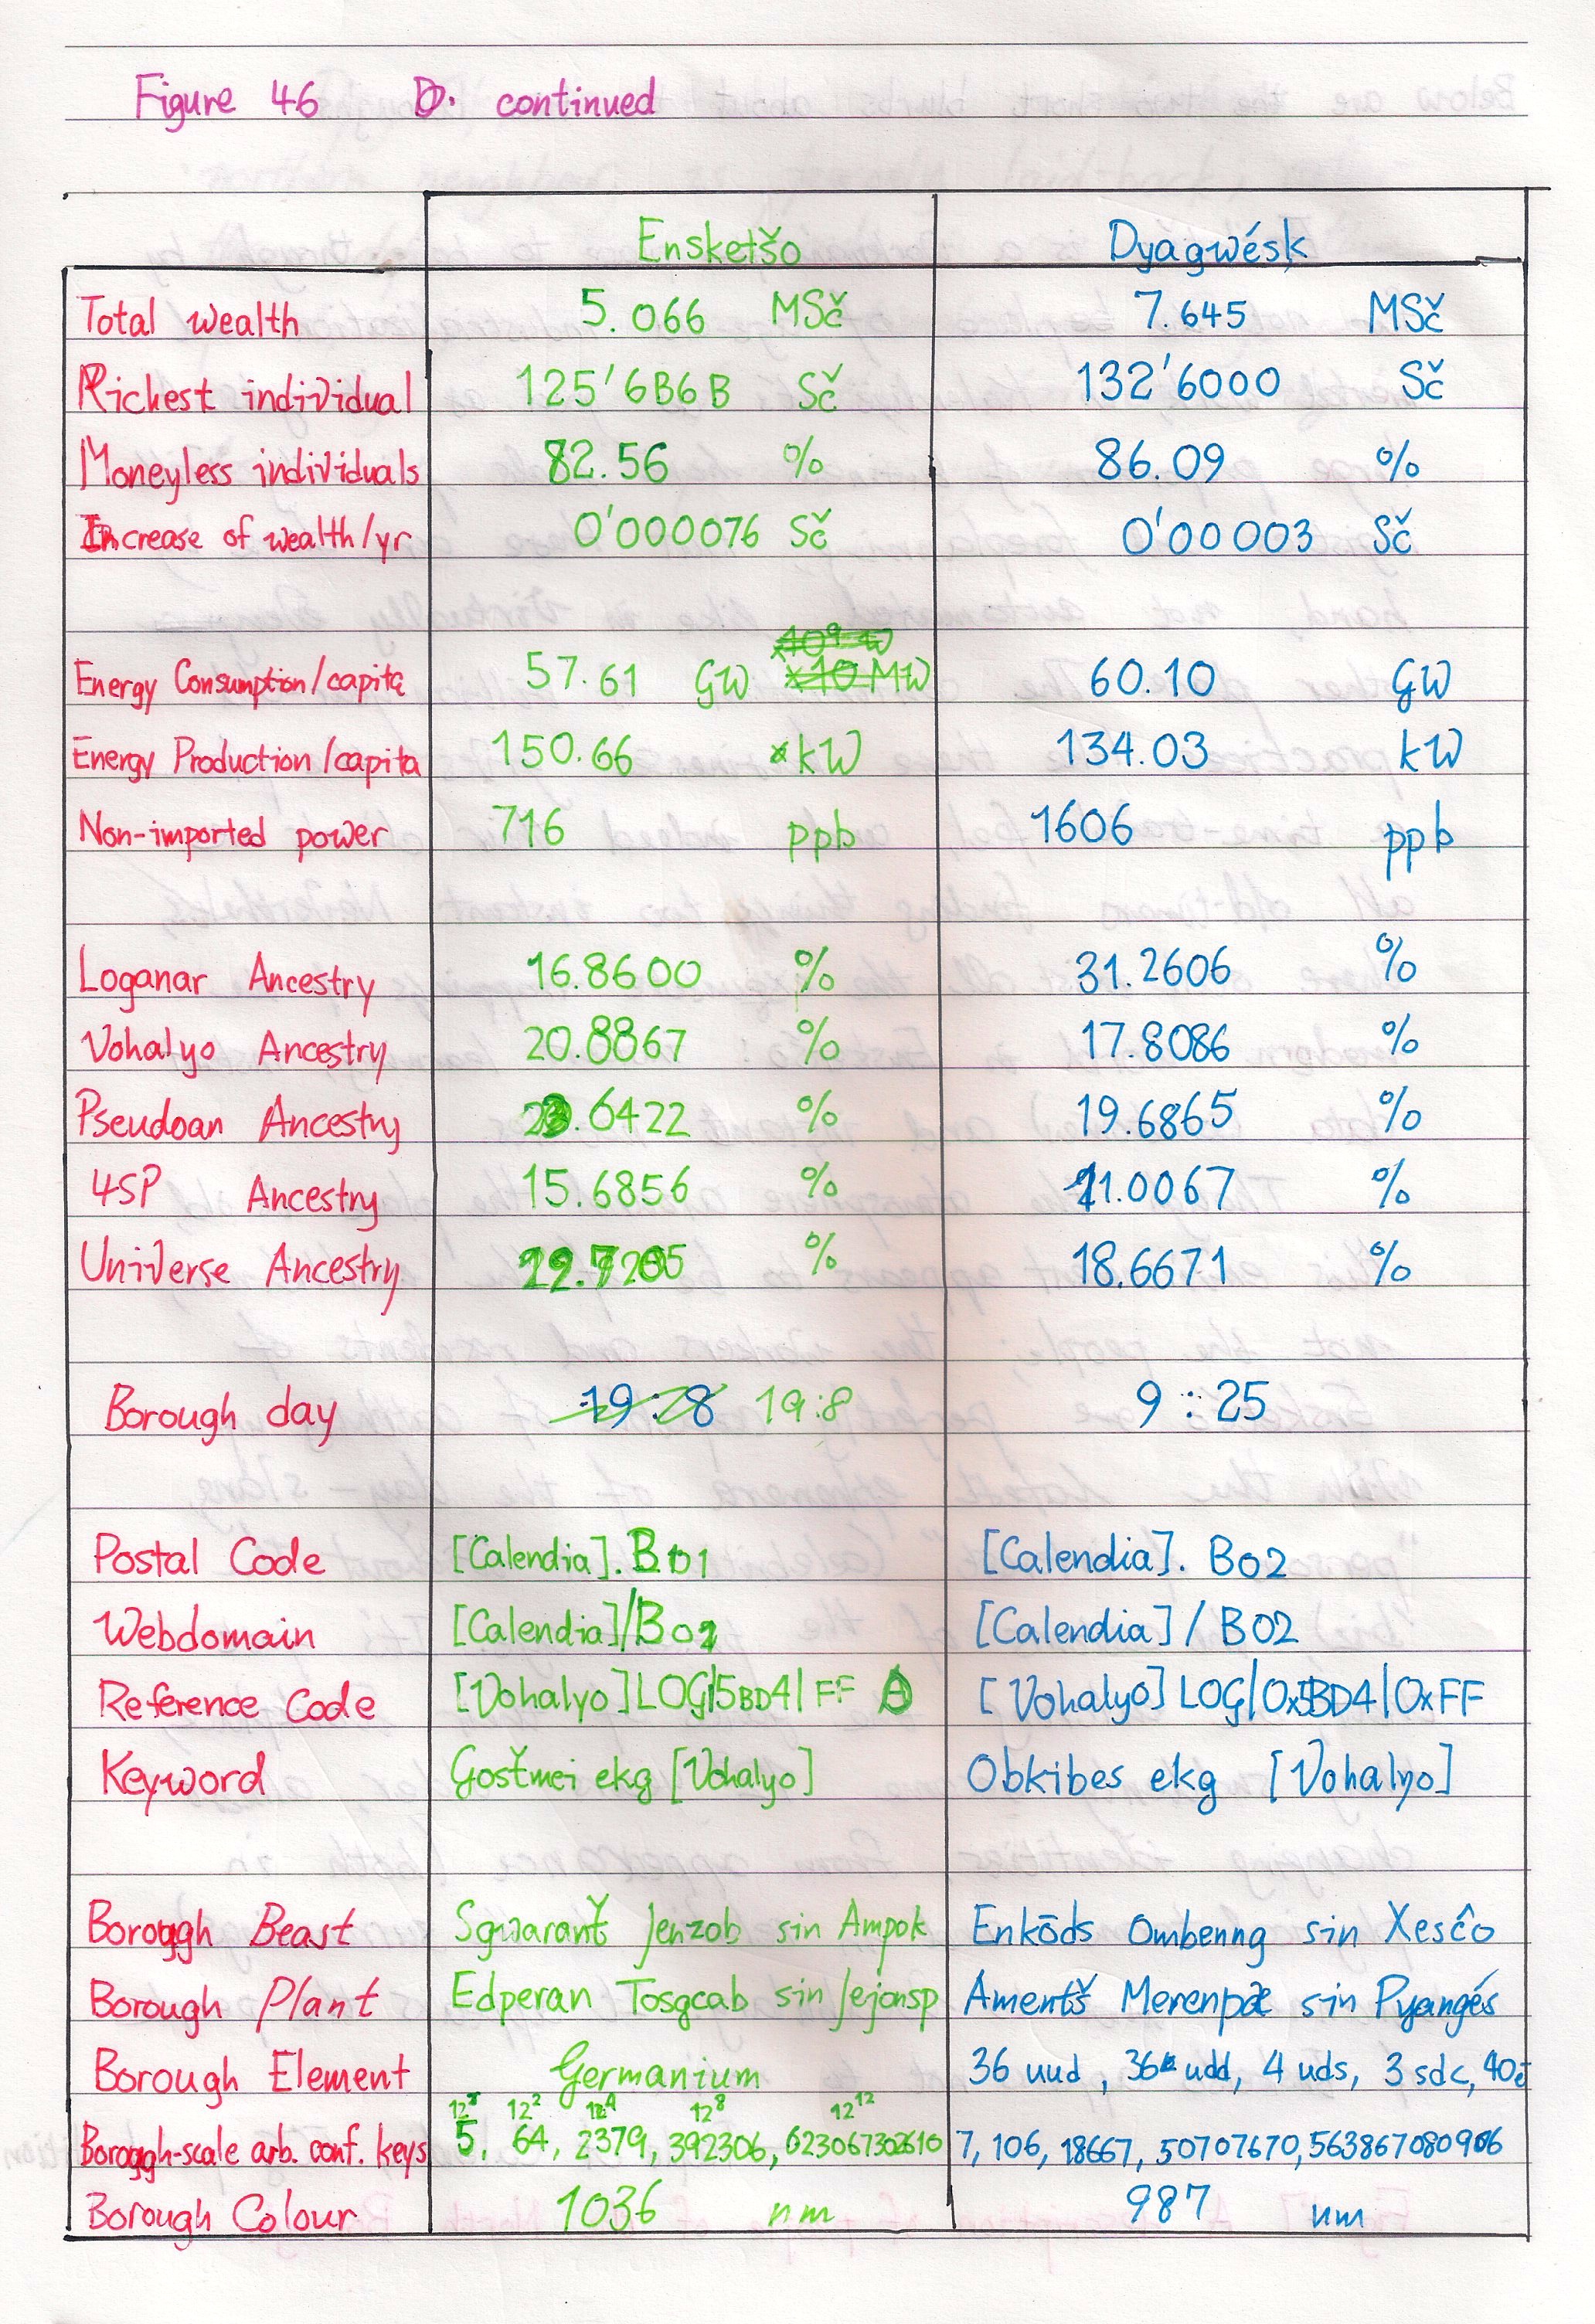 Figure 46 D. continued
Ensketšo Dyagwésk
Total wealth 5.066 MSč 7.645 MSč
Richest individual 125'6B6B Sč 132'6000 Sč
Moneyless individuals 82.56 % 86.09 %
Increase of wealth/yr 0'000076 Sč 0'00003 Sč
Energy Consumption/capita 57.61 GW 60.10 GW
Energy Production/capita 150.66 kW 134.03 kW
Non-imported power 716 ppb 1606 ppb
Loganar Ancestry 16.8600 % 31.2606 %
Vohalyo Ancestry 20.8867 % 17.8086 %
Pseudoan Ancestry .6422 % 19.6865 %
4SP Ancestry 15.6856 % 11.0067 %
Universe Ancestry % 18.6671 %
Borough day 19:28 19:8 9:25
Postal Code [Calendia].B01 [Calendia].B02
Webdomain [Calendia]/B01 [Calendia]/B02
Reference Code [Vohalyo]LOG|5BD4|FF [Vohalyo]LOG|0x5BD4|0xFF
Keyword Gošťmei ekg [Vohalyo] Obkibes ekg [Vohalyo]
Borough Beast Sgwaranš Jenzob sin Ampok Enkōds Ombenng sin Xesĉo
Borough Plant Edperan Tosgcab sin Jejonsp Amentš Merenpæ sin Pyangés
Borough Element Germanium 36 uud, 36 udd, 4 uds, 3 sdc,
12² 12⁴ 12⁸ 12¹²
Borough-scale arb. conf. keys 5, 64, 2379, 392306, 623067302610 7, 106, 18667, 50707670, 563867080906
Borough Colour 1036 nm 987 nm